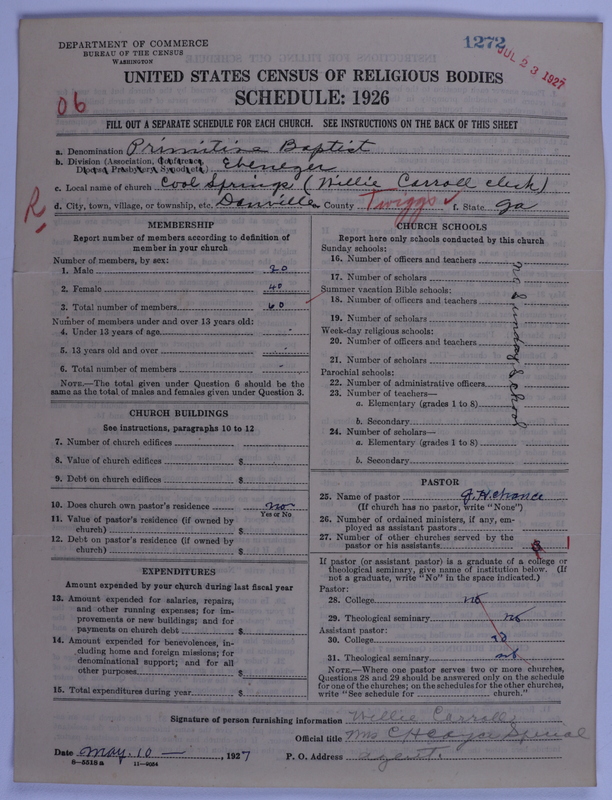 DEPARTMENT OF COMMERCE
BUREAU OF THE CENSUS
WASHINGTON
1272
JUL 23 1927
UNITED STATES CENSUS OF RELIGIOUS BODIES
SCHEDULE: 1926
06
FILL OUT A SEPARATE SCHEDULE FOR EACH CHURCH. SEE INSTRUCTIONS ON THE BACK OF THIS SHEET
a. Denomination Primitive Baptist
b. Division (Association, Conference, Diocese, Presbytery, Synod, etc.) Ebenezer
c. Local name of church Cool Springs (Willie Carroll clerk)
R
d. City, town, village, or township, etc. Danville e. County Twiggs f. State Ga
MEMBERSHIP
Report number of members according to definition of member in your church
Number of members, by sex:
1. Male 20
2. Female 40
3. Total number of members 60
Number of members under and over 13 years old:
4. Under 13 years of age
5. 13 years old and over
6. Total number of members
NOTE.—The total given under Question 6 should be the same as the total of males and females given under Question 3.
CHURCH BUILDINGS
See instructions, paragraphs 10 to 12
7. Number of church edifices
8. Value of church edifices $
9. Debt on church edifices $
10. Does church own pastor's residence no
Yes or No
11. Value of pastor's residence (if owned by church) $
12. Debt on pastor's residence (if owned by church) $
EXPENDITURES
Amount expended by your church during last fiscal year
13. Amount expended for salaries, repairs, and other running expenses; for improvements or new buildings; and for payments on church debt $
14. Amount expended for benevolences, including home and foreign missions; for denominational support; and for all other purposes $
15. Total expenditures during year $
CHURCH SCHOOLS
Report here only schools conducted by this church
Sunday schools:
16. Number of officers and teachers
17. Number of scholars
Summer vacation Bible schools:
18. Number of officers and teachers
19. Number of scholars
Week-day religious schools:
20. Number of officers and teachers
21. Number of scholars
Parochial schools:
22. Number of administrative officers
23. Number of teachers—
a. Elementary (grades 1 to 8)
b. Secondary
24. Number of scholars—
a. Elementary (grades 1 to 8)
b. Secondary
no Sunday School
PASTOR
25. Name of pastor J. H. Chance
(If church has no pastor, write "None")
26. Number of ordained ministers, if any, employed as assistant pastors
27. Number of other churches served by the pastor or his assistants
If pastor (or assistant pastor) is a graduate of a college or theological seminary, give name of institution below. (If not a graduate, write "No" in the space indicated.)
Pastor:
28. College no
29. Theological seminary no
Assistant pastor:
30. College no
31. Theological seminary
NOTE.—Where one pastor serves two or more churches, Questions 28 and 29 should be answered only on the schedule for one of the churches; on the schedules for the other churches, write "See schedule for church."
Signature of person furnishing information Willie Carroll
Official title Mrs C H Special
Date May 10 — , 1927 P. O. Address agent
8—5518 a 11—9054